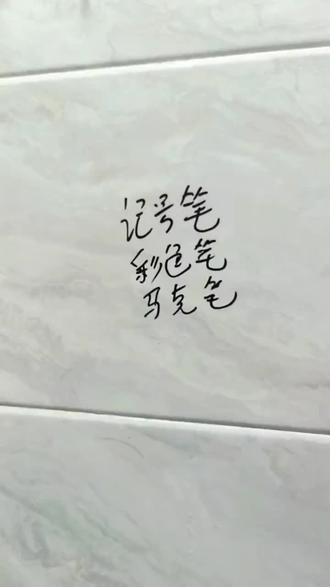 记号笔
彩色笔
马克笔